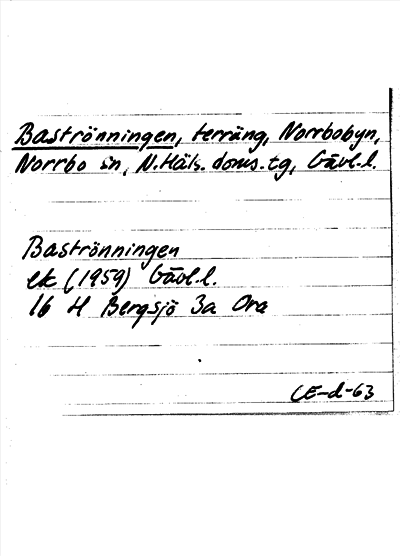 Baströnningen, terräng, Norrbobyn,
Norrbo sn, N.Häls. doms.tg, Gävl.l.
Baströnningen
ek (1959) Gävl.l.
16 H Bergsjö 3a Ora
CE-d-63